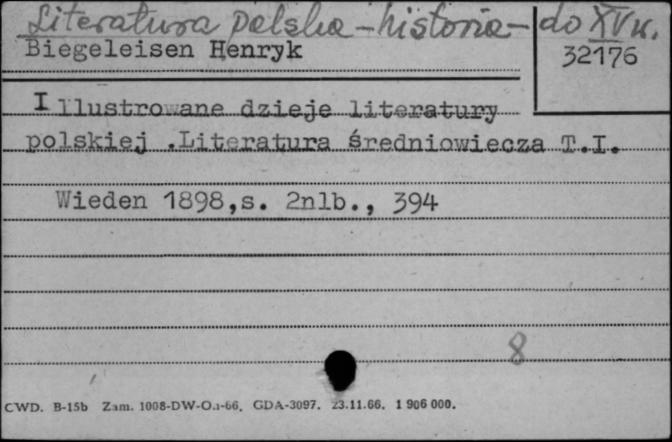 Literatura polska - historia - do XV w.
Biegeleisen Henryk
32176
Illustrowane dzieje literatury
polskiej .Literatura średniowiecza T.I.
Wieden 1898,s. 2nlb., 394
8
CWD. B-15b Zam. 1008-DW-O.1-66. GDA-3097. 23.11.66. 1 906 000.